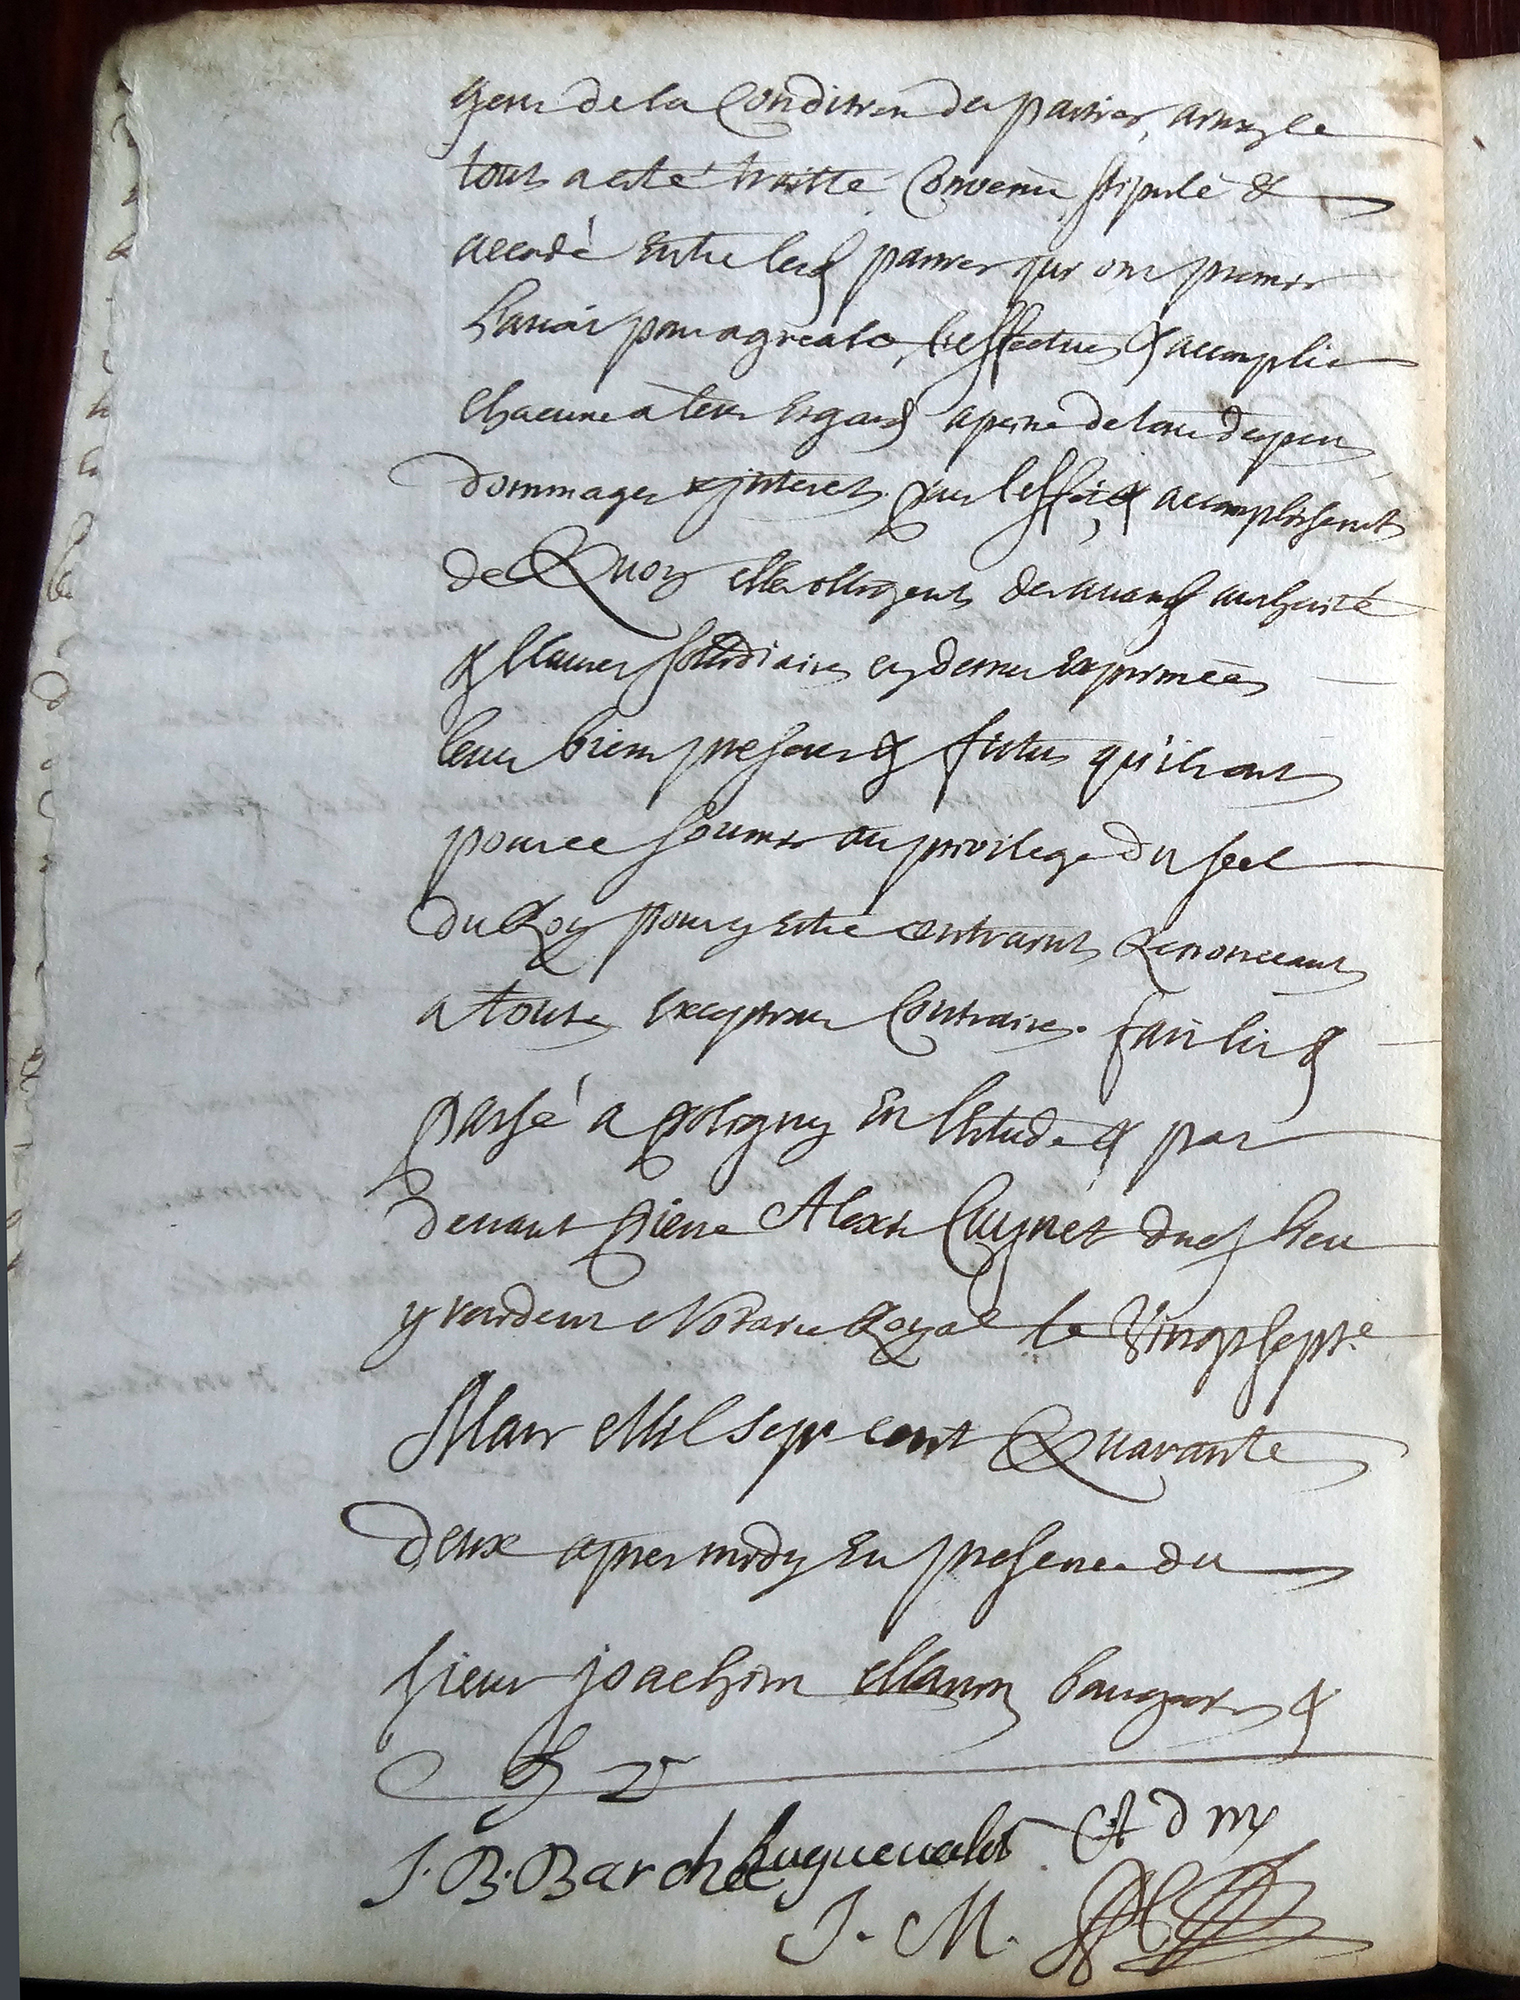 gens de la Condition des parties, ainsy le
tout a esté traitté Convenu stipulé &
accordé Entre lesd parties qui ont promis
L'avoir pour agreable, L'effectuer & accomplir
Chacune a leur Egard a peine de tous despens
dommages & interests. pour L'effet & accomplissement
de Quoy elles obligent des avand authorité
& Clauses solidaires cy dessus Exprimées
leurs biens presens & futurs qu'ils ont
pour ce soumis au privilege du seel
du Roy pour y Estre contraints Renonceant
a toutes Exceptions Contraires. fait lu &
passé a Poligny En L'Etude & par
devant Pierre Alexis Cuynet dud lieu
y residant Notaire Royal le Vingt sept.e
Mars Mil sept cent Quarante
deux apres midy En presence du
sieur joachim Marin &
J. B. Barchet huguenalot A d m
J. M.